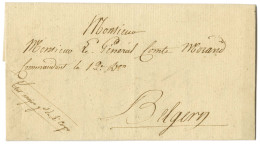 Monsieur
Monsieur Le Général Comte Morand
Commandant la 12e Don
Belgern